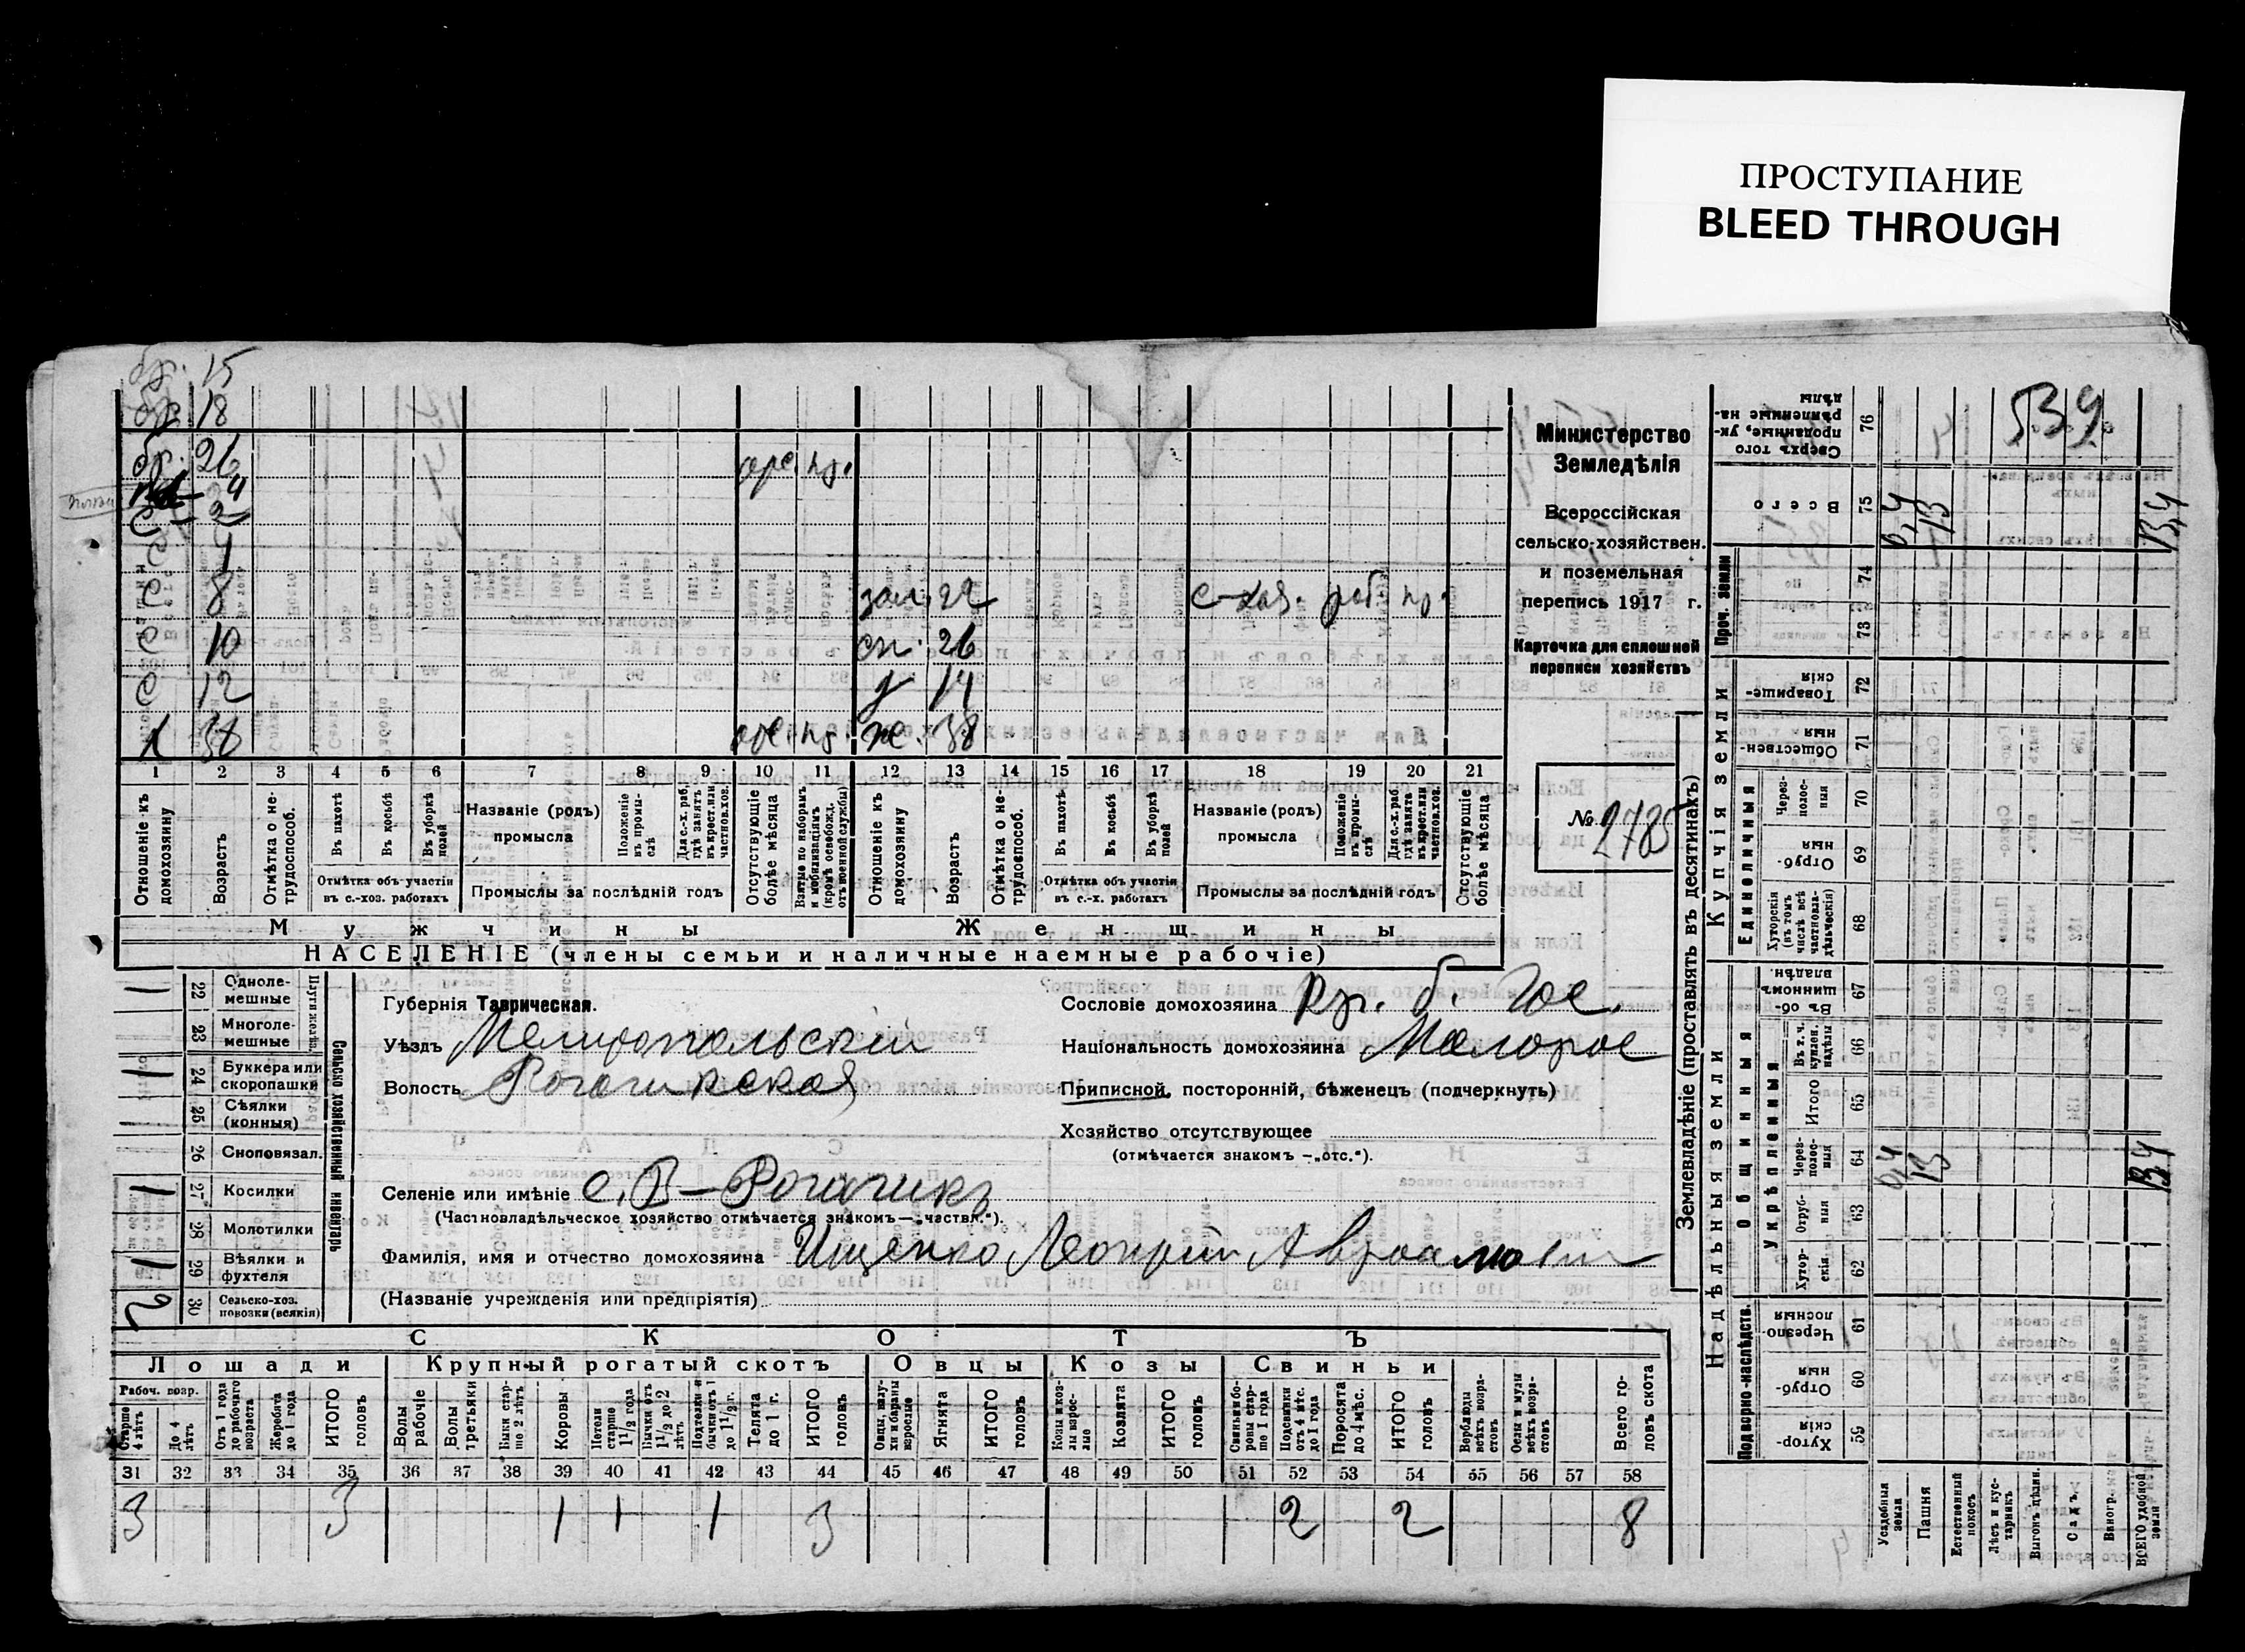 ПРОСТУПАНИЕ
BLEED THROUGH
бр. 15
бр. 18
бр. 26
С 2
С 4
С 8 22
С 10 26
С 12 14
38 ж. 38
1 2 3 4 5 6 7 8 9 10 11 12 13 14 15 16 17 18 19 20 21
Отношеніе къ домохозяину
Возрастъ
Отмѣтка о нетрудоспособ.
Въ пахотѣ
Въ косьбѣ
Въ уборкѣ полей
Отмѣтка объ участіи въ с.-хоз. работахъ
Названіе (родъ) промысла
Положеніе въ промыслѣ
Для с.-х. раб. гдѣ занятъ въ крест. или частнов. хоз.
Промыслы за послѣдній годъ
Отсутствующіе болѣе мѣсяца
Взятые по наборамъ и мобилизаціямъ (кромѣ освобожд. отъ военной службы)
Отношеніе къ домохозяину
Возрастъ
Отмѣтка о нетрудоспособ.
Въ пахотѣ
Въ косьбѣ
Въ уборкѣ полей
Отмѣтка объ участіи въ с.-х. работахъ
Названіе (родъ) промысла
Положеніе въ промыслѣ
Для с.-х. раб. гдѣ занята въ крест. или частнов. хоз.
Промыслы за послѣдній годъ
Отсутствующіе болѣе мѣсяца
Мужчины Женщины
НАСЕЛЕНІЕ (члены семьи и наличные наемные рабочіе)
Министерство
Земледѣлія
Всероссійская
сельско-хозяйствен.
и поземельная
перепись 1917 г.
Карточка для сплошной
переписи хозяйствъ
№ 2785
Сельско хозяйственный инвентарь
Плуги желѣзн.
22 Одноле-мешные
23 Многоле-мешные
24 Буккера или скоропашки
25 Сѣялки (конныя)
26 Сноповязал.
27 Косилки
28 Молотилки
29 Вѣялки и фухтеля
30 Сельско-хоз. повозки (всякія)
Губернія Таврическая.
Уѣздъ Мелитопольскій
Волость Рогачикская
Селеніе или имѣніе с. В-Рогачикъ
(Частновладѣльческое хозяйство отмѣчается знакомъ—„частвл.“).
Фамилія, имя и отчество домохозяина Ищенко
(Названіе учрежденія или предпріятія)
Сословіе домохозяина кр. б. гос.
Національность домохозяина Малорос
Приписной, посторонній, бѣженецъ (подчеркнуть)
Хозяйство отсутствующее
(отмѣчается знакомъ —„отс.“).
СКОТЪ
Лошади Крупный рогатый скотъ Овцы Козы Свиньи
Рабоч. возр.
Старше 4 лѣтъ
До 4 лѣтъ
Отъ 1 года до рабочаго возраста
Жеребята до 1 года
ИТОГО головъ
Волы рабочіе
Волы третьяки
Быки старше 2 лѣтъ
Коровы
Нетели старше 1 1/2 года
Бычки отъ 1 1/2 до 2 лѣтъ
Подтелки и бычки отъ 1 до 1 1/2 г.
Телята до 1 г.
ИТОГО головъ
Овцы, валухи и бараны взрослые
Ягнята
ИТОГО головъ
Козы и козлы взрослые
Козлята
ИТОГО головъ
Свиньи боровы старше 1 года
Подсвинки отъ 4 мѣс. до 1 года
Поросята до 4 мѣс.
ИТОГО головъ
Верблюды всѣхъ возрастовъ
Ослы и мулы всѣхъ возрастовъ
Всего головъ скота
31 32 33 34 35 36 37 38 39 40 41 42 43 44 45 46 47 48 49 50 51 52 53 54 55 56 57 58
3 3 1 1 1 3 2 2 8
Землевладѣніе (проставлять въ десятинахъ)
Надѣльныя земли Купчія земли Проч. земли
Подворно-наслѣдств. Общинныя Укрѣпленныя Единоличныя
59 Хуторскія
60 Отрубныя
61 Черезполосныя
62 Хуторскія
63 Отрубныя
64 Черезполосныя
65 Итого
66 Въ т. ч. куплен. надѣлы
67 Въ общинномъ владѣн.
68 Хуторскія (въ томъ числѣ всѣ частновладѣльческія)
69 Отрубныя
70 Черезполосныя
71 Общественныя
72 Товарищескія
73
74
75 Всего
76 Сверхъ того проданные, укрѣпленные надѣлы
Усадебныя земли
Пашня
Естественный покосъ
Лѣсъ и кустарникъ
Выгонъ цѣлин.
Садъ
Виногр.
ВСЕГО удобной земли
0,4 13 13,4
0,4 13 13,4
539